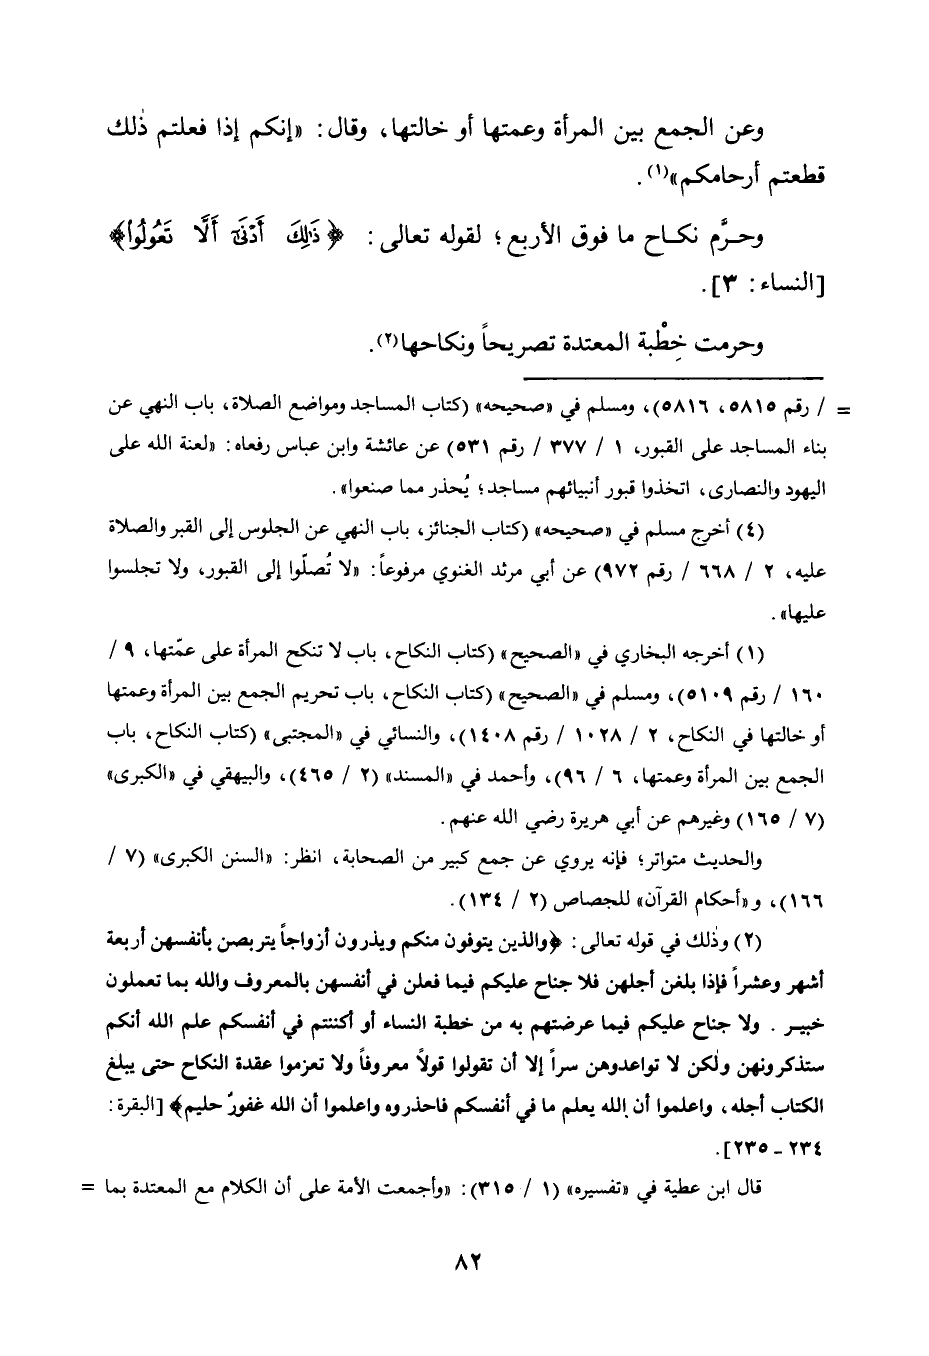 وعن الجمع بين المرأة وعمتها أو خالتها، وقال: «إنكم إذا فعلتم ذٰلك
قطعتم أرحامكم»(١).
وحـرَّم نكـاح ما فوق الأربع؛ لقوله تعالى: ﴿ذَٰلِكَ أَدْنَىٰٓ أَلَّا تَعُولُوا۟﴾
[النساء: ٣].
وحرمت خِطْبة المعتدة تصريحاً ونكاحها(٢).
= / رقم ٥٨١٥، ٥٨١٦)، ومسلم في «صحيحه» (كتاب المساجد ومواضع الصلاة، باب النهي عن
بناء المساجد على القبور، ١ / ٣٧٧ / رقم ٥٣١) عن عائشة وابن عباس رفعاه: «لعنة الله على
اليهود والنصارى، اتخذوا قبور أنبيائهم مساجد؛ يُحذر مما صنعوا».
(٤) أخرج مسلم في «صحيحه» (كتاب الجنائز، باب النهي عن الجلوس إلى القبر والصلاة
عليه، ٢ / ٦٦٨ / رقم ٩٧٢) عن أبي مرثد الغنوي مرفوعاً: «لا تُصلّوا إلى القبور، ولا تجلسوا
عليها».
(١) أخرجه البخاري في «الصحيح» (كتاب النكاح، باب لا تنكح المرأة على عمّتها، ٩ /
١٦٠ / رقم ٥١٠٩)، ومسلم في «الصحيح» (كتاب النكاح، باب تحريم الجمع بين المرأة وعمتها
أو خالتها في النكاح، ٢ / ١٠٢٨ / رقم ١٤٠٨)، والنسائي في «المجتبى» (كتاب النكاح، باب
الجمع بين المرأة وعمتها، ٦ / ٩٦)، وأحمد في «المسند» (٢ / ٤٦٥)، والبيهقي في «الكبرى»
(٧ / ١٦٥) وغيرهم عن أبي هريرة رضي الله عنهم.
والحديث متواتر؛ فإنه يروي عن جمع كبير من الصحابة، انظر: «السنن الكبرى» (٧ /
١٦٦)، و«أحكام القرآن» للجصاص (٢ / ١٣٤).
(٢) وذٰلك في قوله تعالى: ﴿والذين يتوفون منكم ويذرون أزواجاً يتربصن بأنفسهن أربعة
أشهر وعشراً فإذا بلغن أجلهن فلا جناح عليكم فيما فعلن في أنفسهن بالمعروف والله بما تعملون
خبيـر . ولا جناح عليكم فيما عرضتهم به من خطبة النساء أو أكننتم في أنفسكم علم الله أنكم
ستذكرونهن ولٰكن لا تواعدوهن سراً إلا أن تقولوا قولاً معروفاً ولا تعزموا عقدة النكاح حتى يبلغ
الكتاب أجله، واعلموا أن الله يعلم ما في أنفسكم فاحذروه واعلموا أن الله غفورٌ حليم﴾ [البقرة:
٢٣٤ - ٢٣٥].
قال ابن عطية في «تفسيره» (١ / ٣١٥): «وأجمعت الأمة على أن الكلام مع المعتدة بما =
٨٢